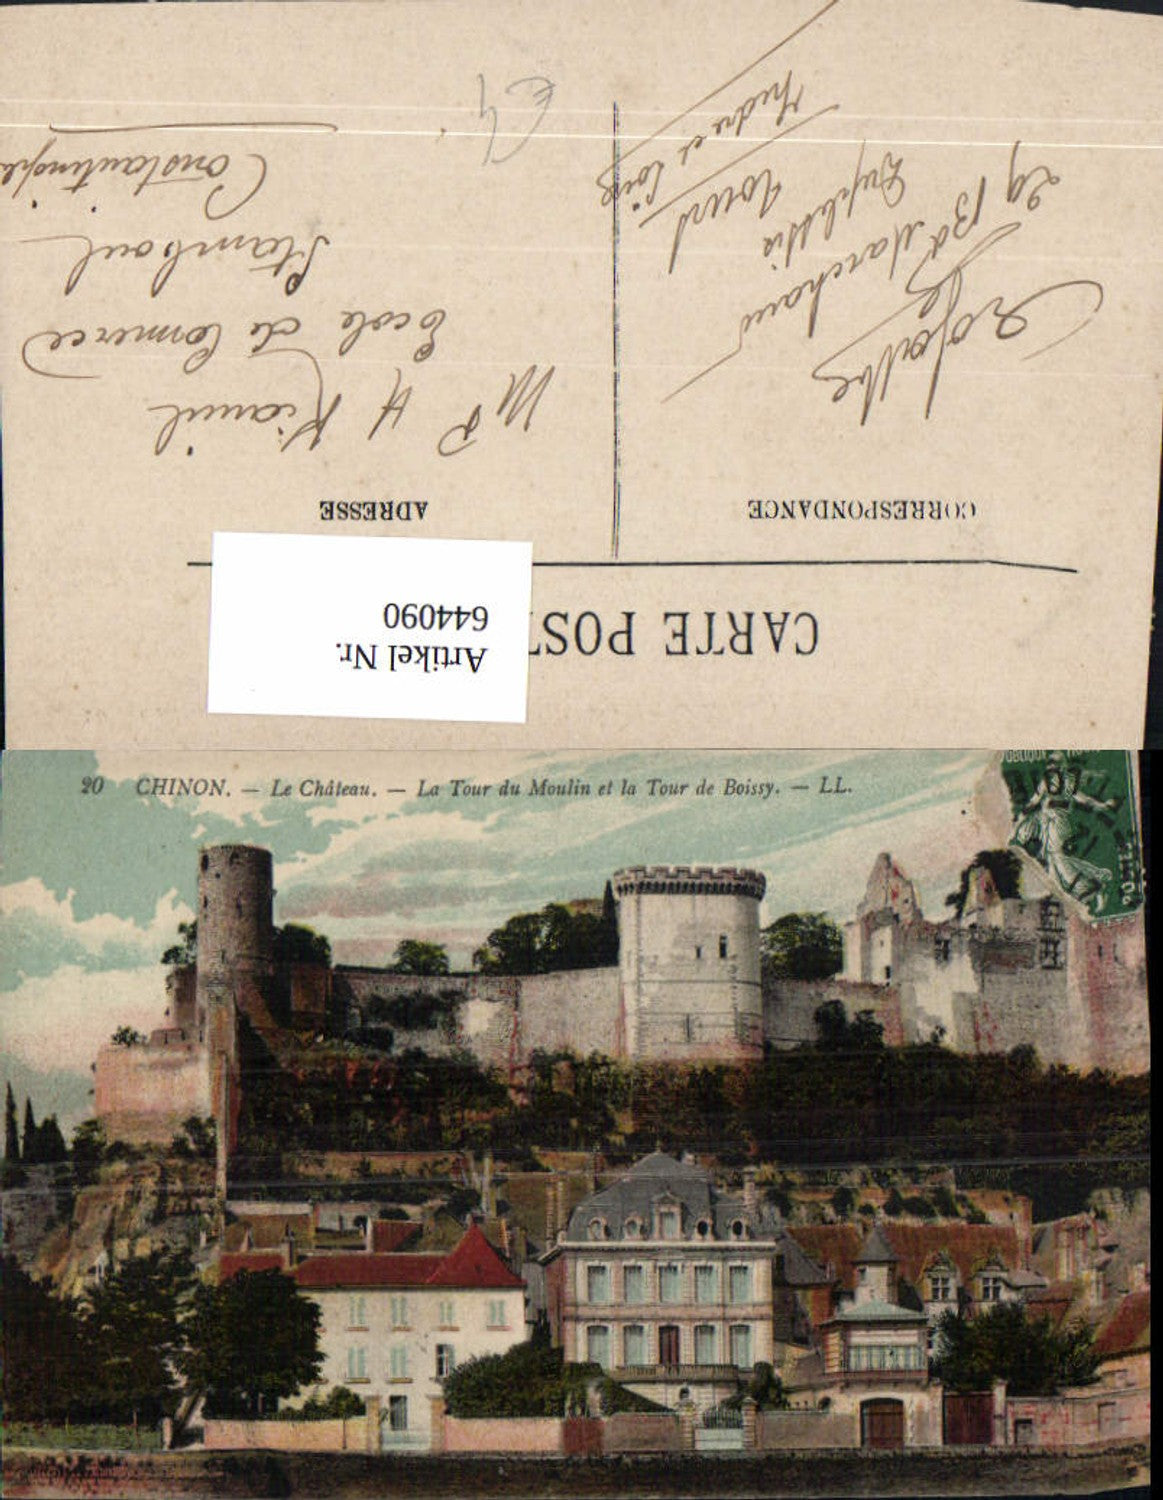 CARTE POST
Artikel Nr.
644090
CORRESPONDANCE
ADRESSE
29 Bd Marchant
Duplessis
Tours
Indre et Loire
Mr H Kiamil
Ecole de Commerce
Stamboul
Constantinople
20 CHINON. — Le Château. — La Tour du Moulin et la Tour de Boissy. — LL.